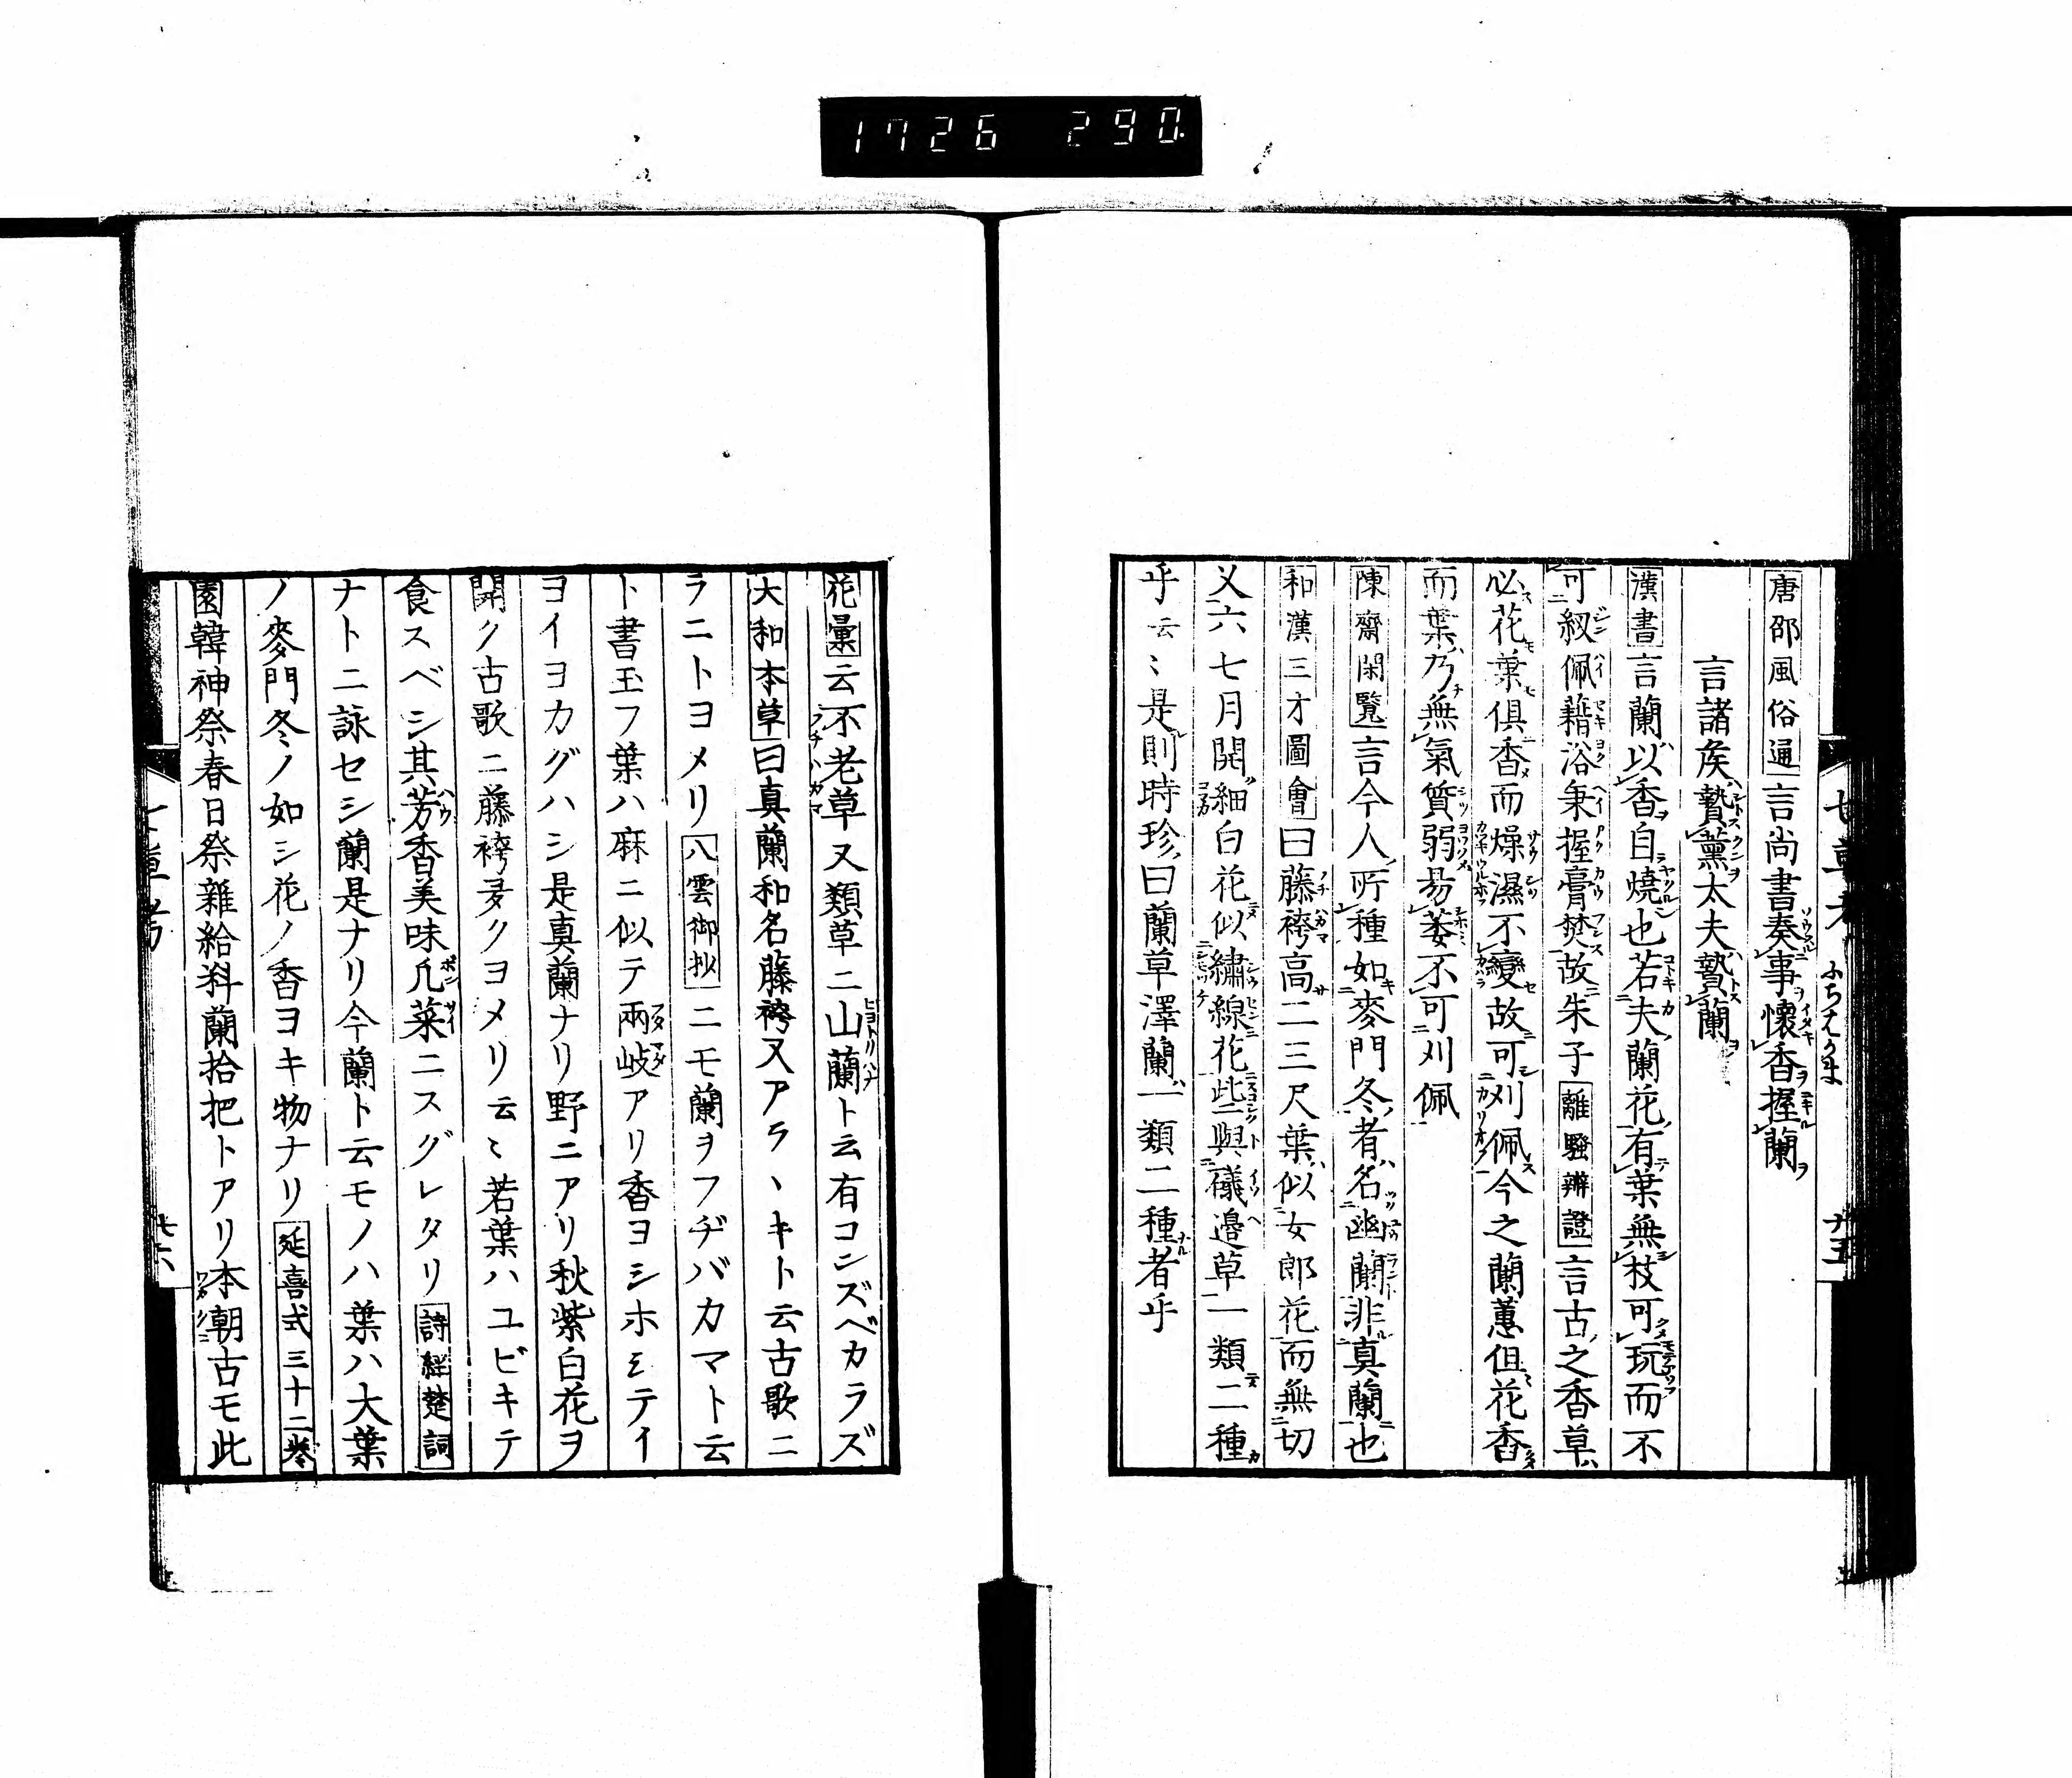 1726 290
七草考 ふぢばかま 十五
唐邵風俗通言尚書奏事懷香握蘭
言諸矦贄薫太夫贄蘭
漢書言蘭以香自燒也若夫蘭花有葉無枝可玩而不
可紉佩藉浴秉握膏焚故朱子離騷辨證言古之香草
必花葉俱香而燥濕不變故可刈佩今之蘭蕙但花香
而葉乃無氣質弱易萎不可刈佩
陳齋閑覧言今人所種如麥門冬者名幽蘭非真蘭也
和漢三才圖會曰藤袴高二三尺葉似女郎花而無切
又六七月開細白花似繡線花此與礒邉草一類二種
乎云〻是則時珍曰蘭草澤蘭一類二種者乎
花彙云不老草又類草ニ山蘭ト云有コンズベカラズ
大和本草曰真蘭和名藤袴又アラヽキト云古歌ニ
ラニトヨメリ八雲御抄ニモ蘭ヲフヂバカマト云
ト書玉フ葉ハ麻ニ似テ兩岐アリ香ヨシホミテイ
ヨイヨカグハシ是真蘭ナリ野ニアリ秋紫白花ヲ
開ク古歌ニ藤袴多クヨメリ云〻若葉ハユビキテ
食スベシ其芳香美味凡菜ニスグレタリ詩経楚詞
ナトニ詠セシ蘭是ナリ今蘭ト云モノハ葉ハ大葉
ノ麥門冬ノ如シ花ノ香ヨキ物ナリ延喜式三十二巻
園韓神祭春日祭雜給料蘭拾把トアリ本朝古モ此
七草考 十六